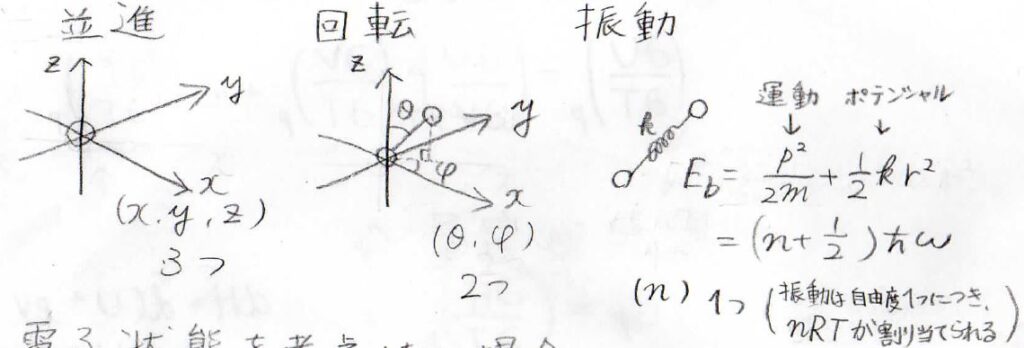 並進 回転 振動
z y x
(x, y, z)
3つ
z θ y φ x
(θ, φ)
2つ
k
運動 ポテンシャル
↓ ↓
E_b = p²/2m + 1/2 k r²
= (n + 1/2) ℏω
(n) 1つ (振動は自由度1つにつき、
nRTが割り当てられる)